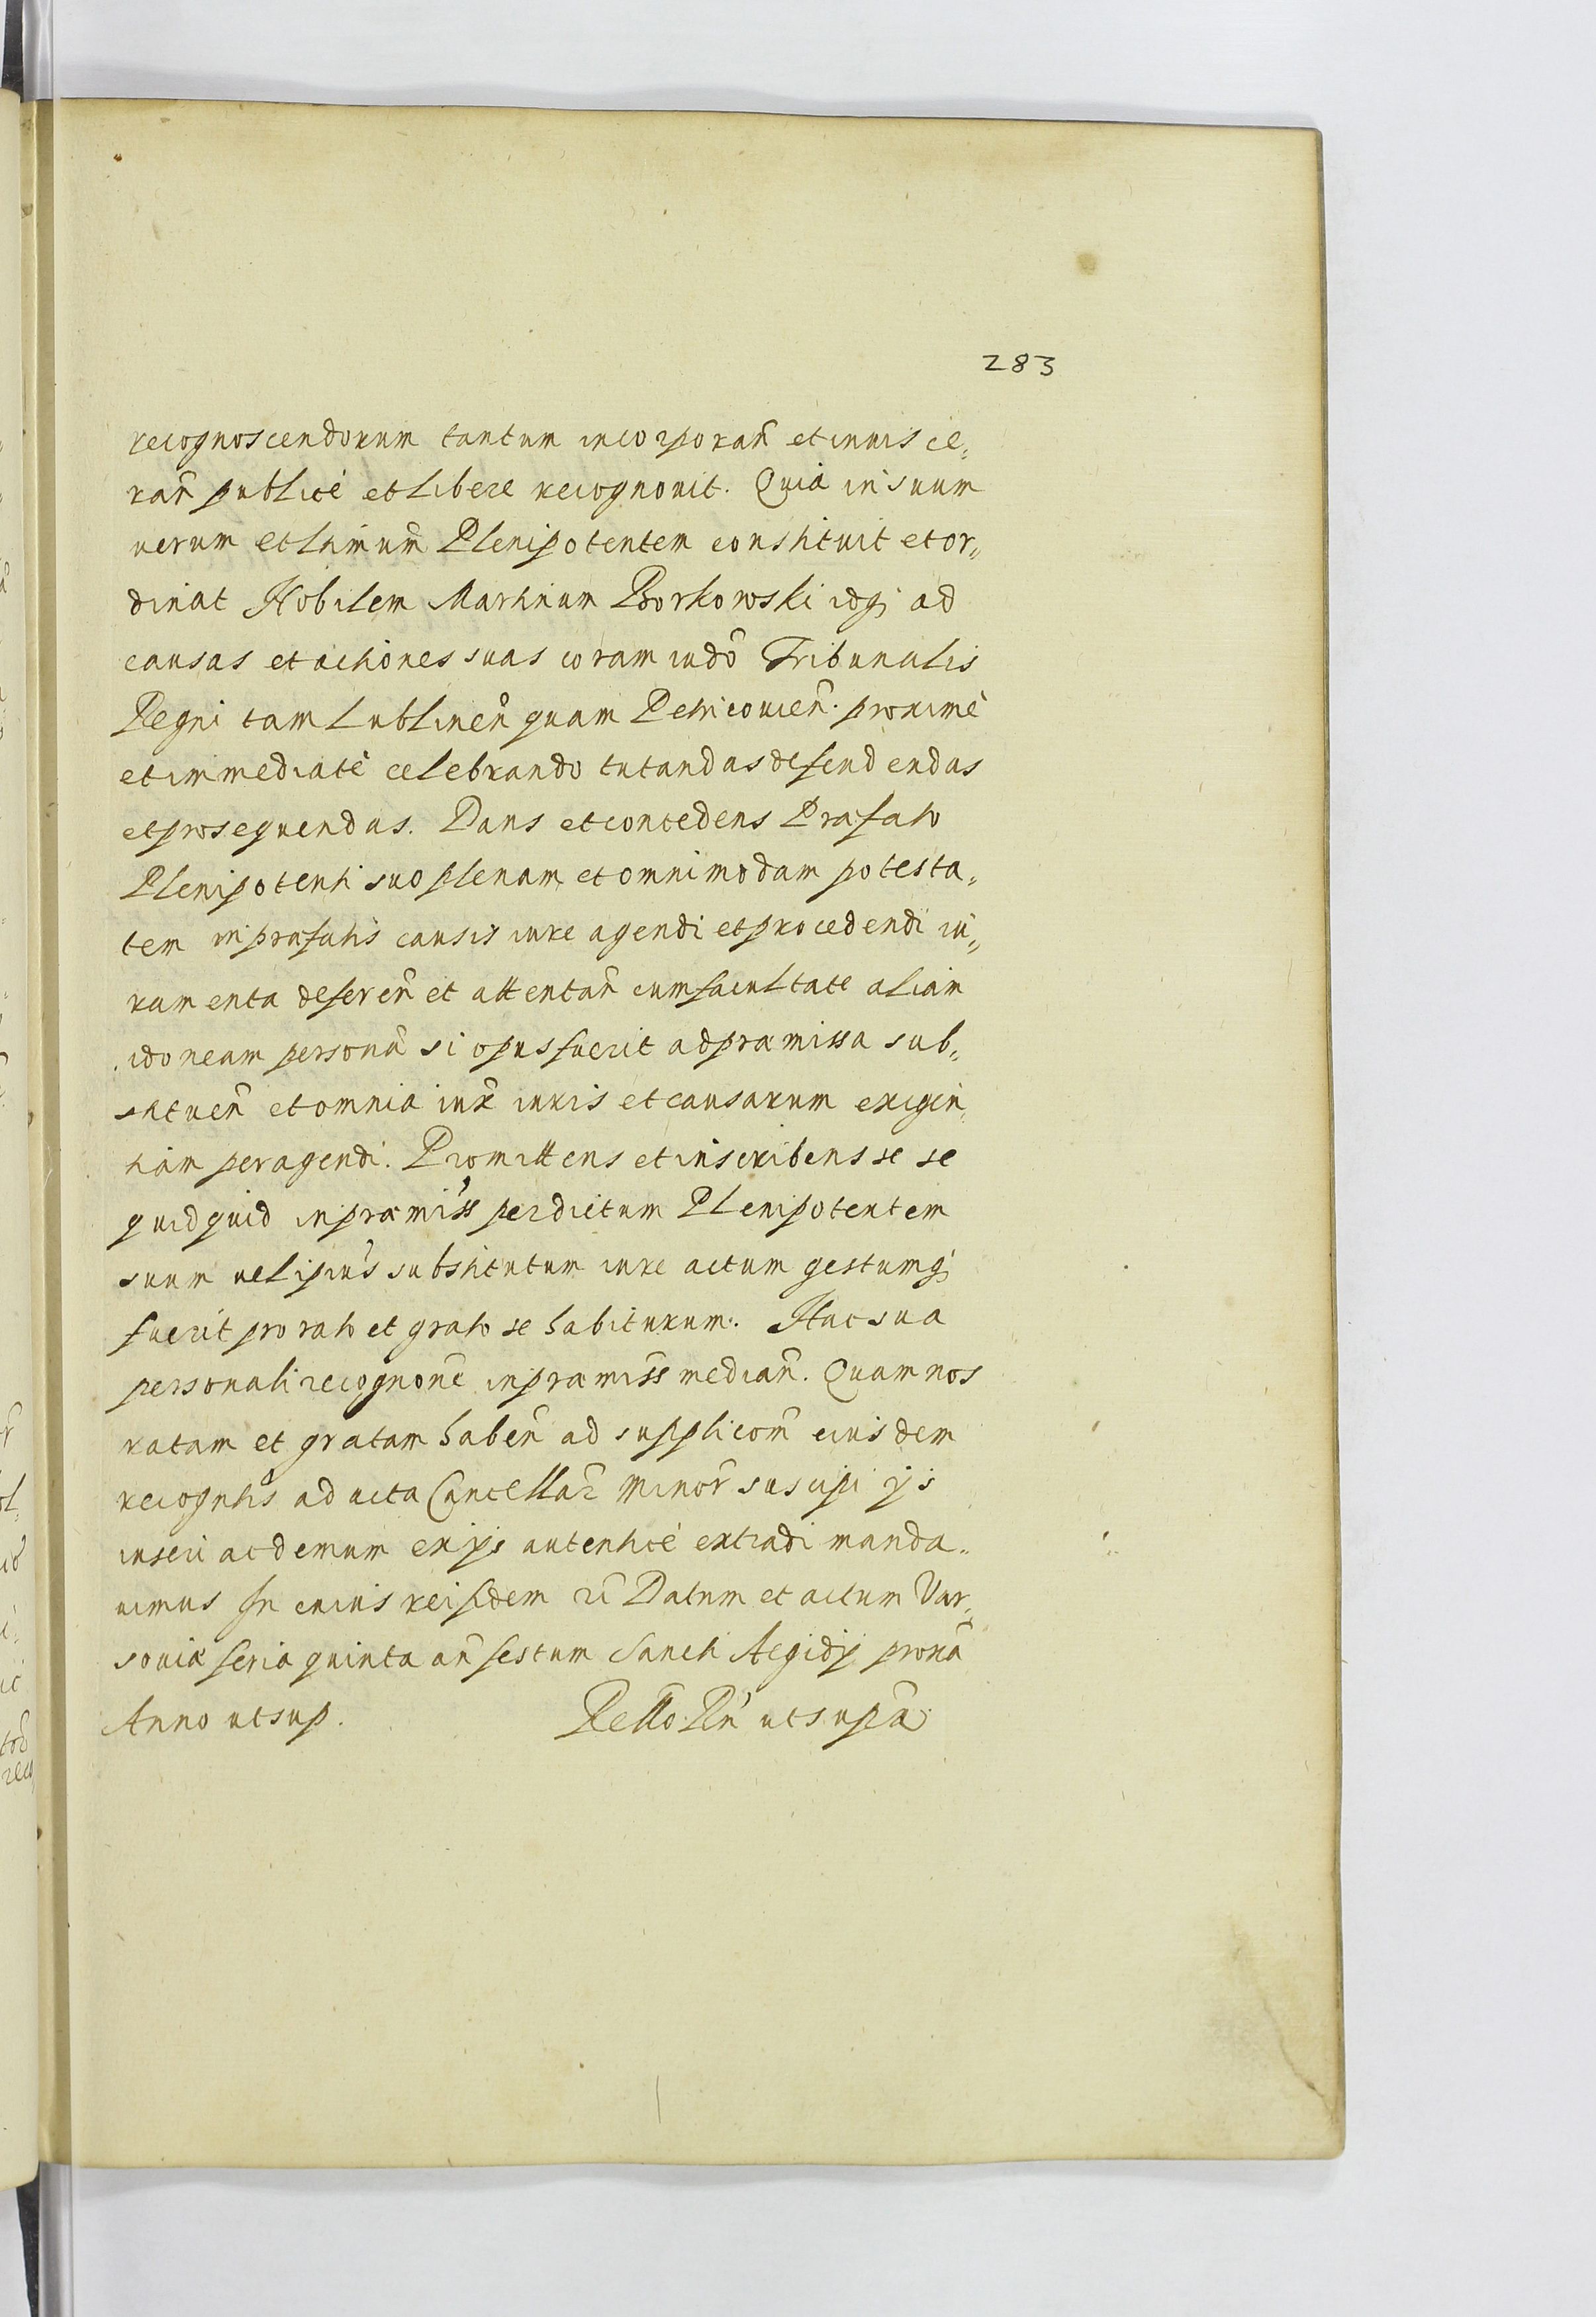 283
recognoscendorum tantum incorporan̄ et inuisce„
ran̄ publicè et libere recognouit. Quià in suum
uerum et Ltimum̄ Plenipotentem constituit et or„
dinat Nobilem Martinum Borkowski idq; ad
causas et actiones suas coram iudō Tribunalis
Regni tam Lublinen̄ quam Petricouien̄. proximè
et immediatè celebrando tutandas defendendas
et prosequendas. Dans et concedens Præfato
Plenipotenti suo plenam et omnimodam potesta„
tem in præfatis causis iure agendi et procedendi iu„
ramenta deferen̄ et attentan̄ cum facultate aliam
idoneam personā si opus fuerit ad præmissa sub„
stituen̄ et omnia iux̄ iuris et causarum exigen„
tiam peragendi. Promittens et inscribens se se
quidquid in præmiss̄ per dictum Plenipotentem
suum uel ipius̄ substitutum iure actum gestumq;
fuerit pro rato et grato se habiturum. Hac sua
personali recognōne in præmiss̄ median̄. Quam nos
ratam et gratam haben̄ ad supplicom̄ eiusdem
recogntis̄ ad acta Cancellar̄ Minor̄ suscipi ijs
inseri ac demum ex ijs autenticè extradi manda„
uimus In cuius rei fidem  Datum et actum Var„
souiæ feria quinta an̄ festum Sancti Aegidij proxā
Anno ut sup.
 ut suprā